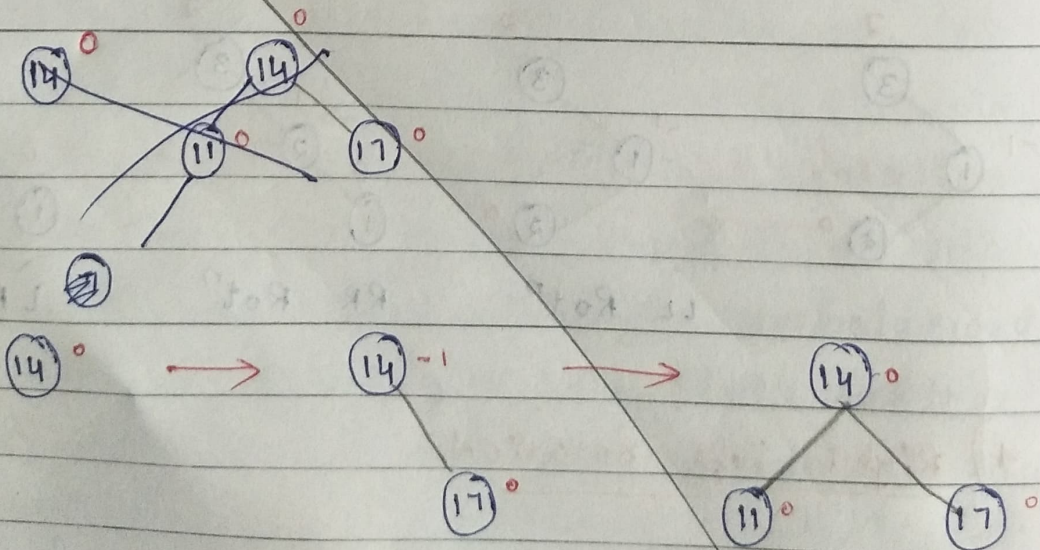 0
14 0 14
11 0 17 0
14 0 14 -1 14 0
17 0 11 0 17 0